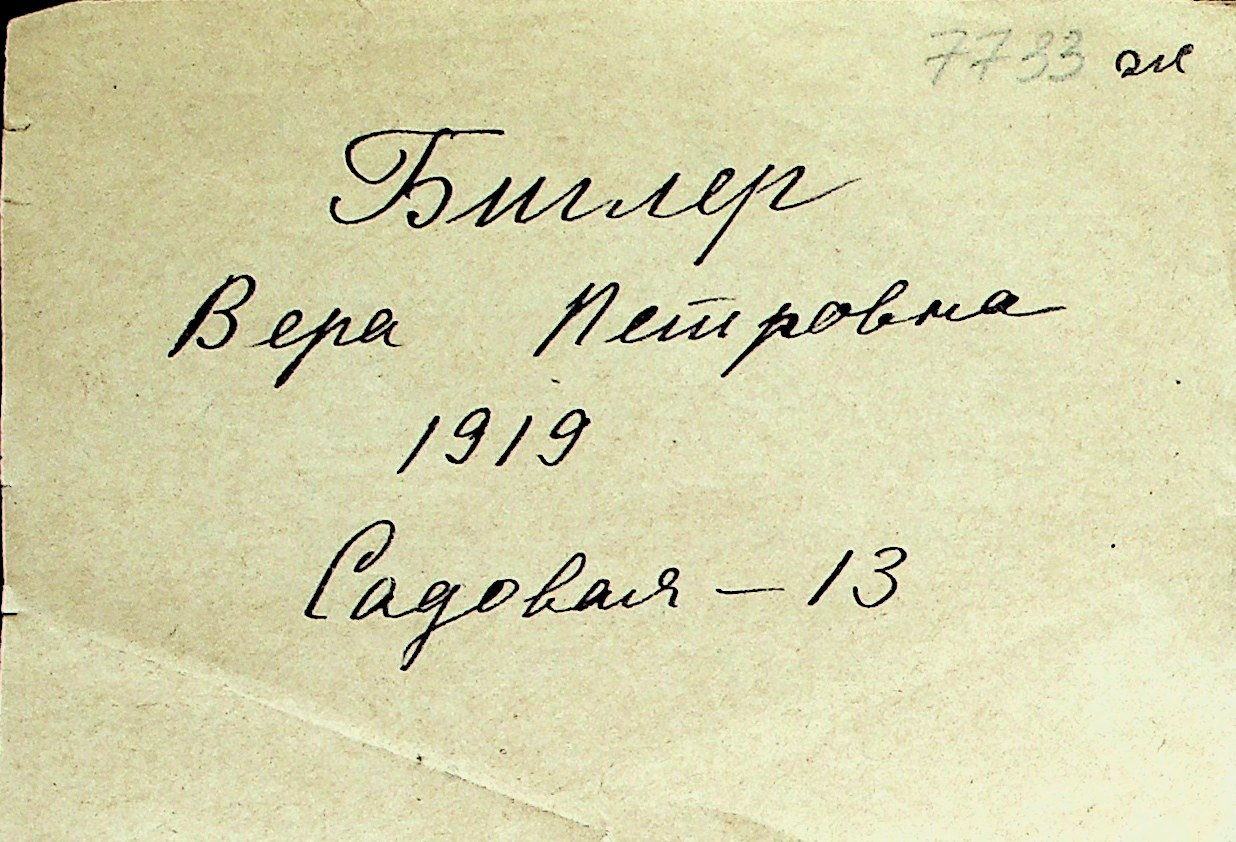 7733 ж
Биглер
Вера Петровна
1919
Садовая – 13